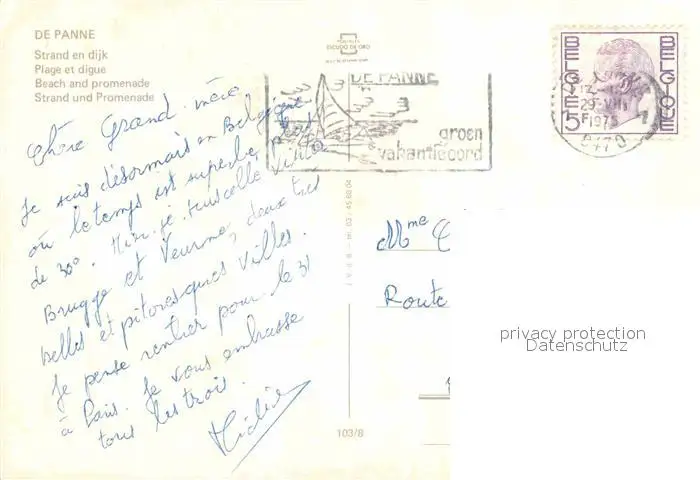 DE PANNE
Strand en dijk
Plage et digue
Beach and promenade
Strand und Promenade
Chère Grand-mère,
Je suis désormais en Belgique
où le temps est superbe, plus
de 30°. Hier, je visité
Brugge et Veurne, deux très
belles et pitoresques villes.
Je pense rentrer pour le 31
à Paris. Je vous embrasse
tous les trois.
Didier
ESCUDO DE ORO
DE PANNE
groen
vakantieoord
BELGIE
BELGIQUE
5F
29-VIII
1975
8470
103/8
Mme
Route
privacy protection
Datenschutz